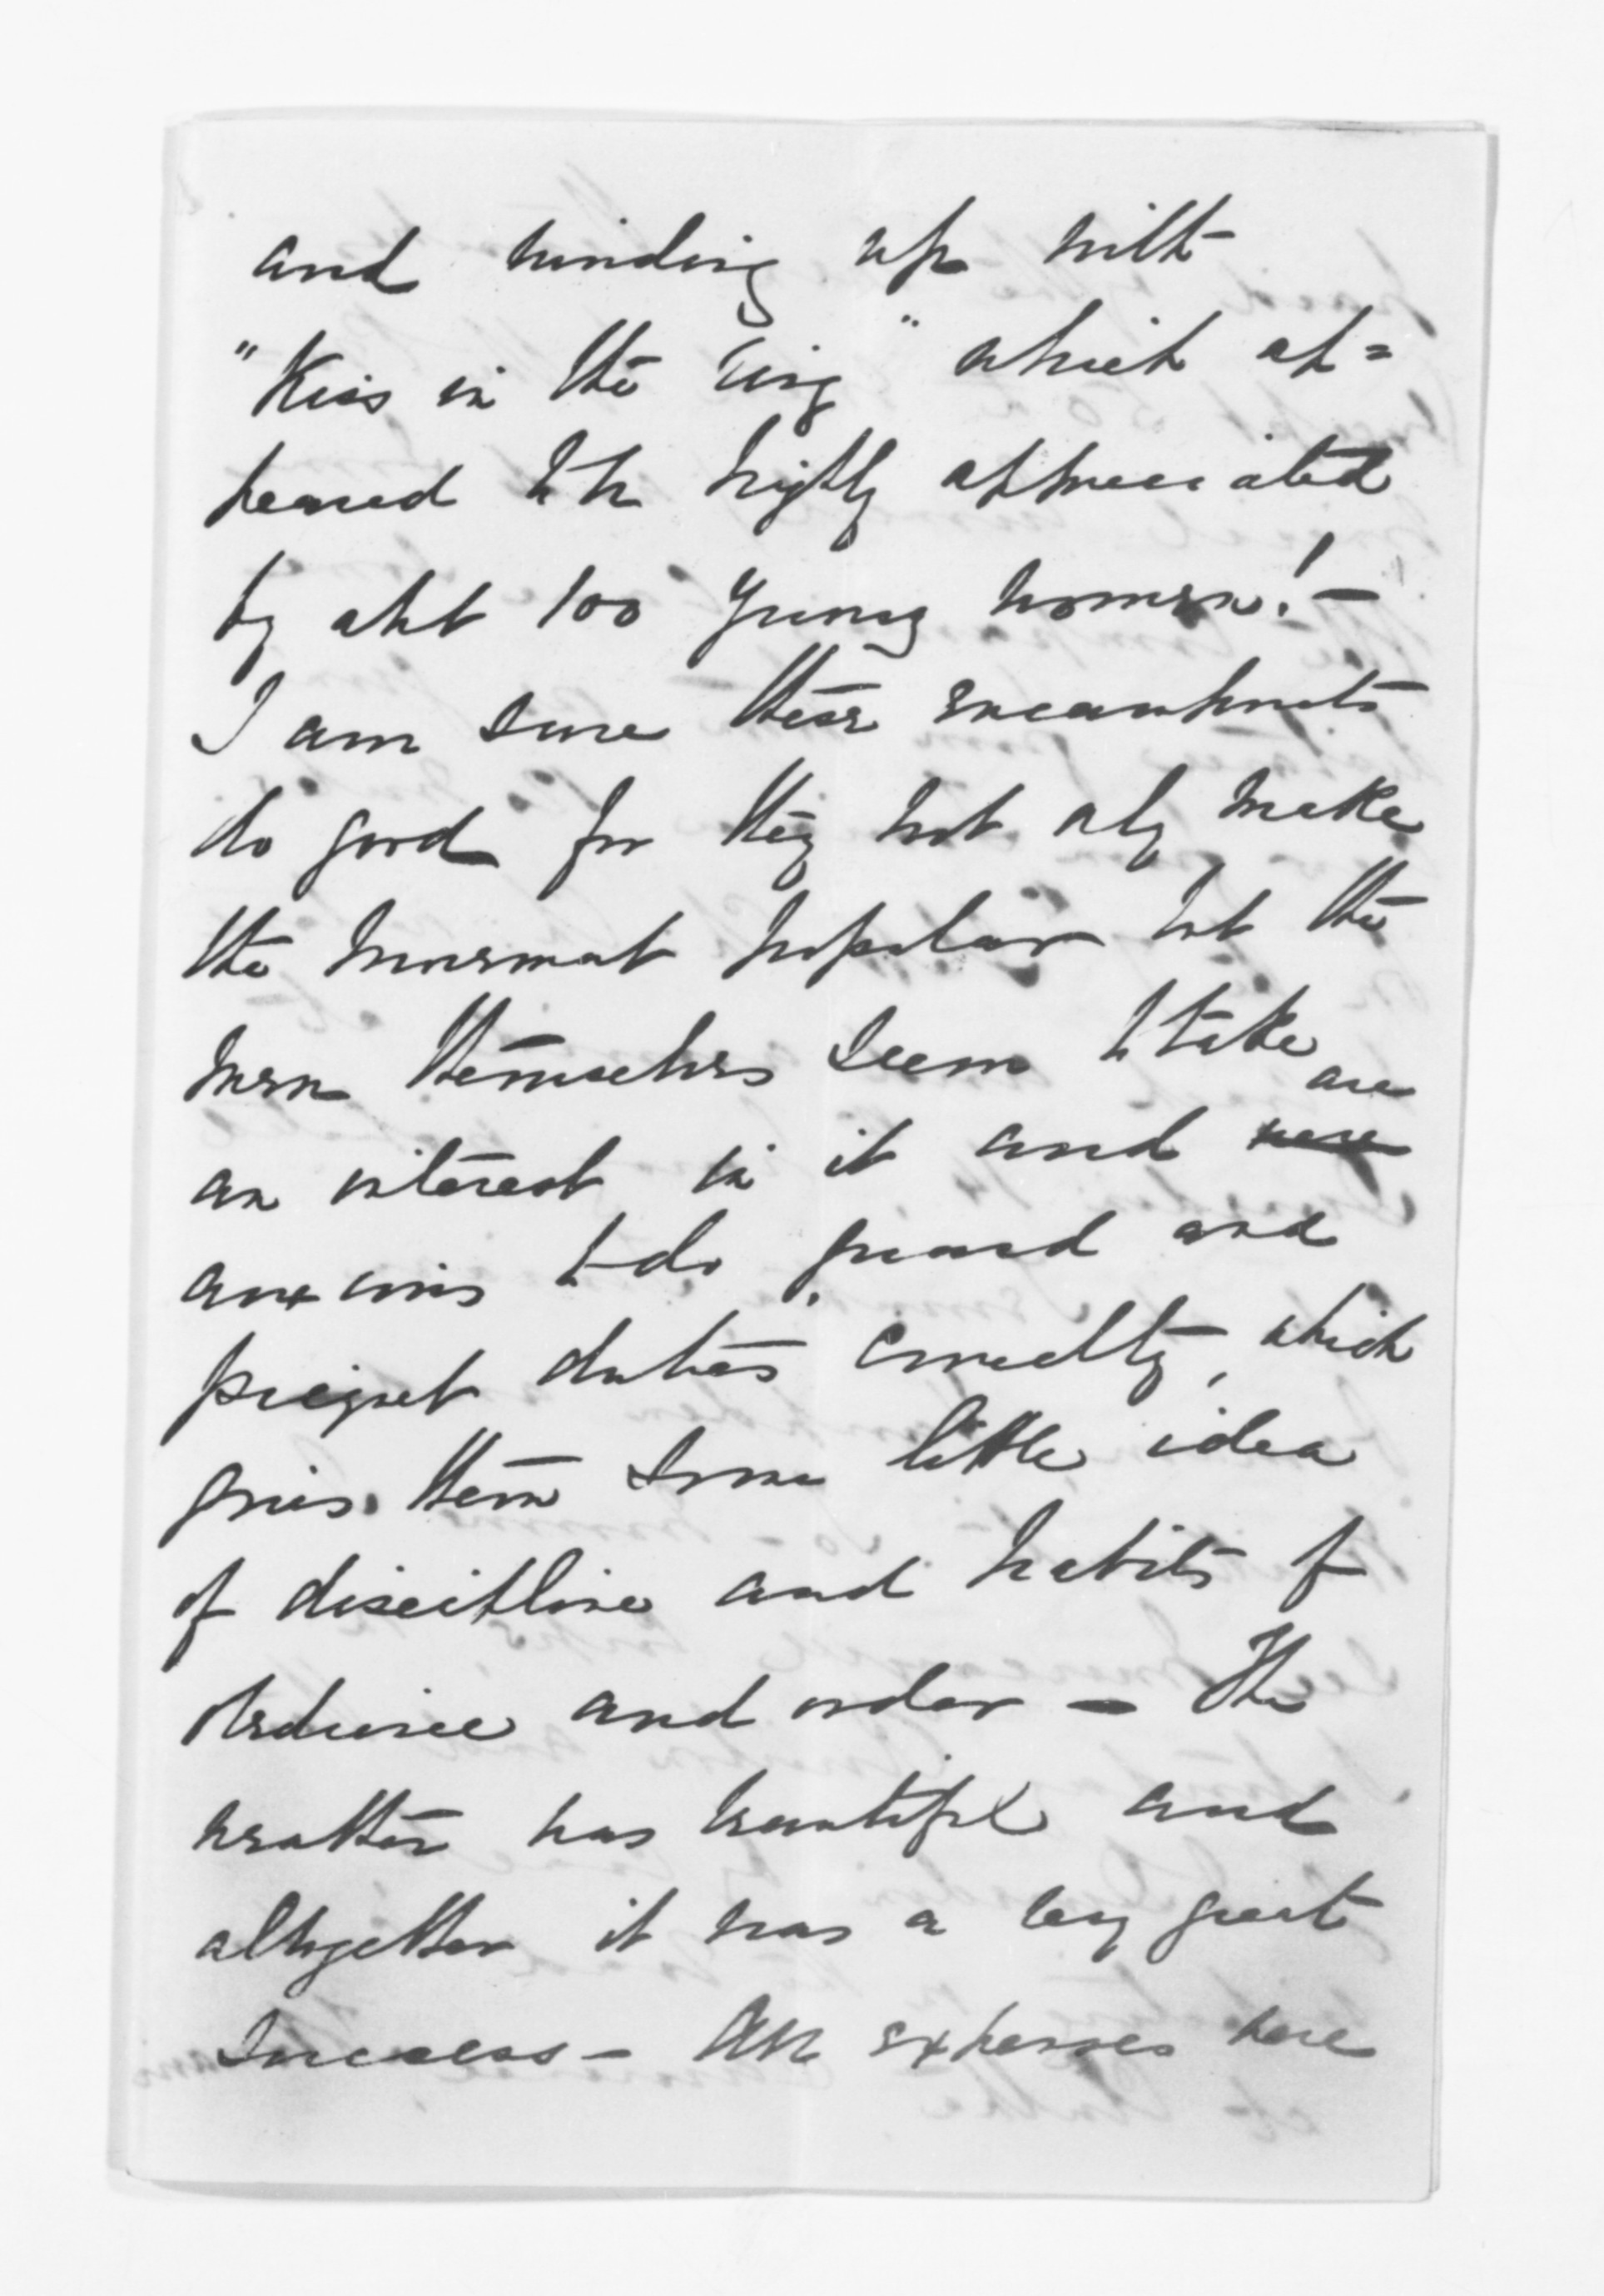 and winding up with
"Kiss in the ring" which ap=
peared to be highly appreciated
by abt 100 young women! –
I am sure these encampmts
do good for they not only make
the movement popular but the
men themselves seem to take
an interest in it and ~~were~~ are
anxious to do guard and
picquet duties correctly, which
gives them some little idea
of discipline and habits of
obedience and order – The
weather was beautiful and
altogether it was a very great
success – All expenses were